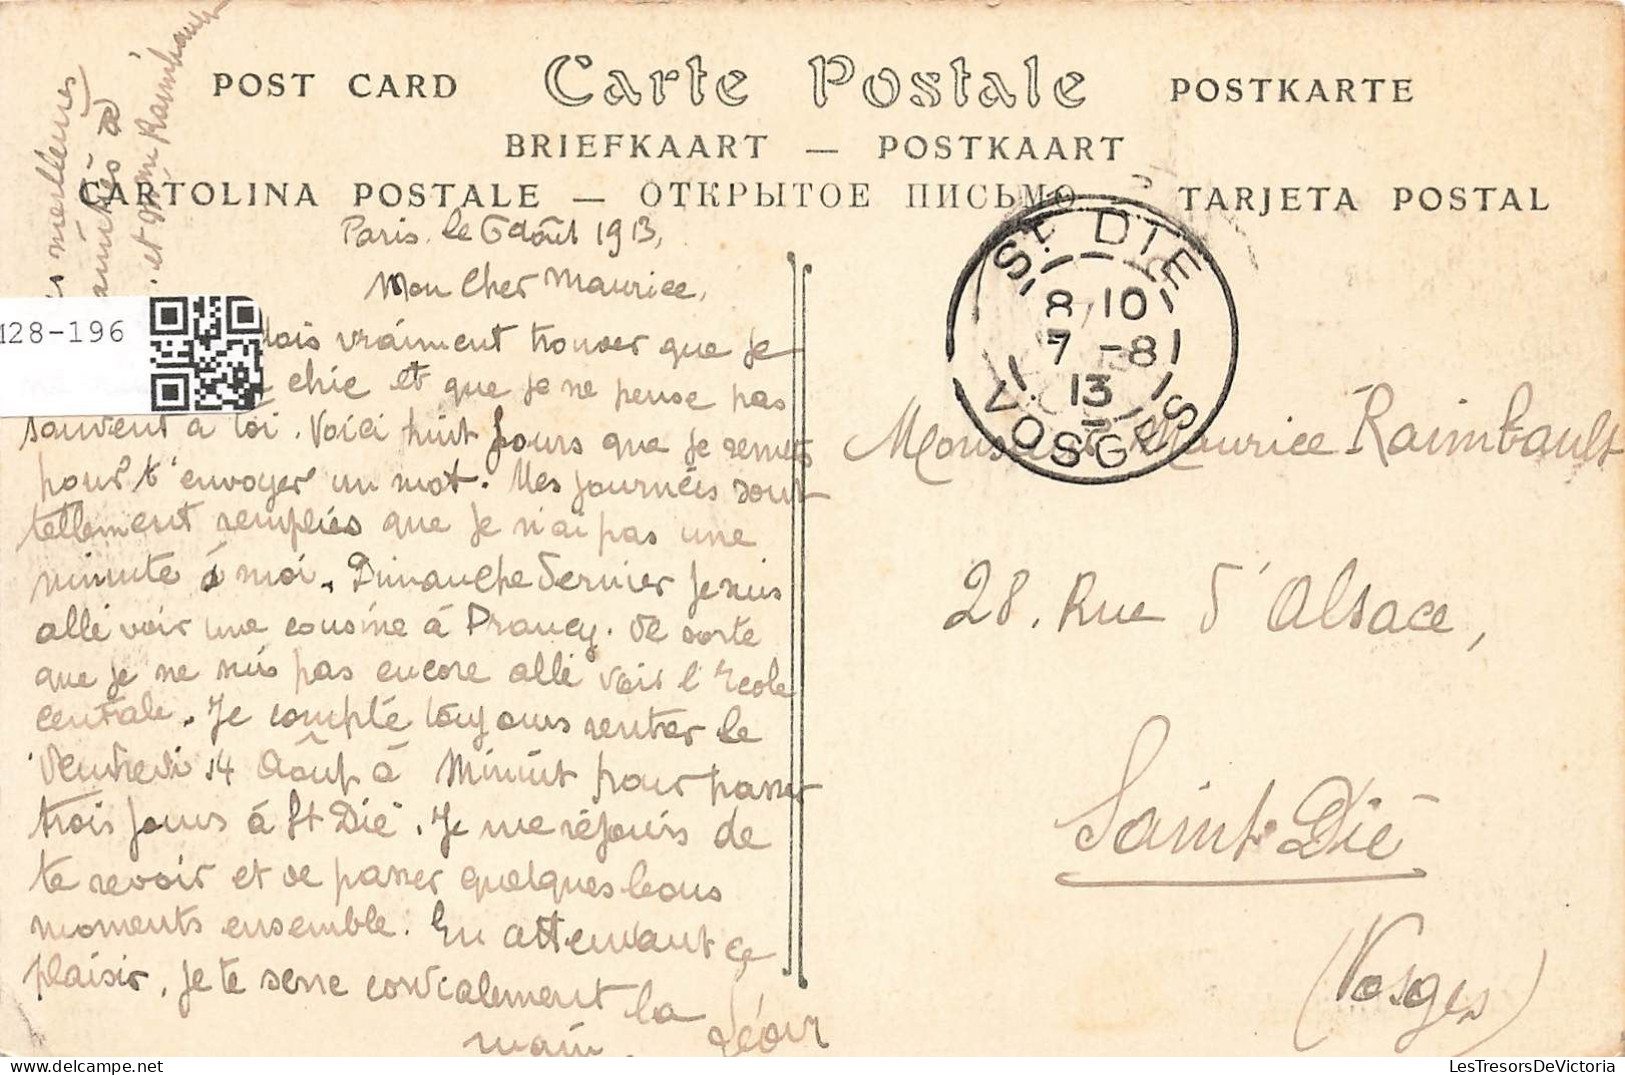 POST CARD Carte Postale POSTKARTE
BRIEFKAART — POSTKAART
CARTOLINA POSTALE — ОТКРЫТОЕ ПИСЬМО TARJETA POSTAL
meilleures
amitiés à
et Mme Raimbault
M28-196
Paris. le 6 août 1913,
Mon Cher Maurice,
dois vraiment trouver que je
chic et que je ne pense pas
souvent à toi. Voici huit jours que je remets
pour t'envoyer un mot. Mes journées sont
tellement remplies que je n'ai pas une
minute à moi. Dimanche dernier je suis
allé voir une cousine à Drancy. de sorte
que je ne suis pas encore allé voir l'Ecole
Centrale. Je compte toujours rentrer le
Vendredi 14 Août à Minuit pour passer
trois jours à St Dié. Je me réjouis de
te revoir et de passer quelques bons
moments ensemble. En attendant ce
plaisir, je te serre cordialement la
main. Léon
ST DIÉ
8 10
7 -8
13
VOSGES
Monsieur Maurice Raimbault
28. Rue d'Alsace,
Saint-Dié
(Vosges)
LesTresorsDeVictoria